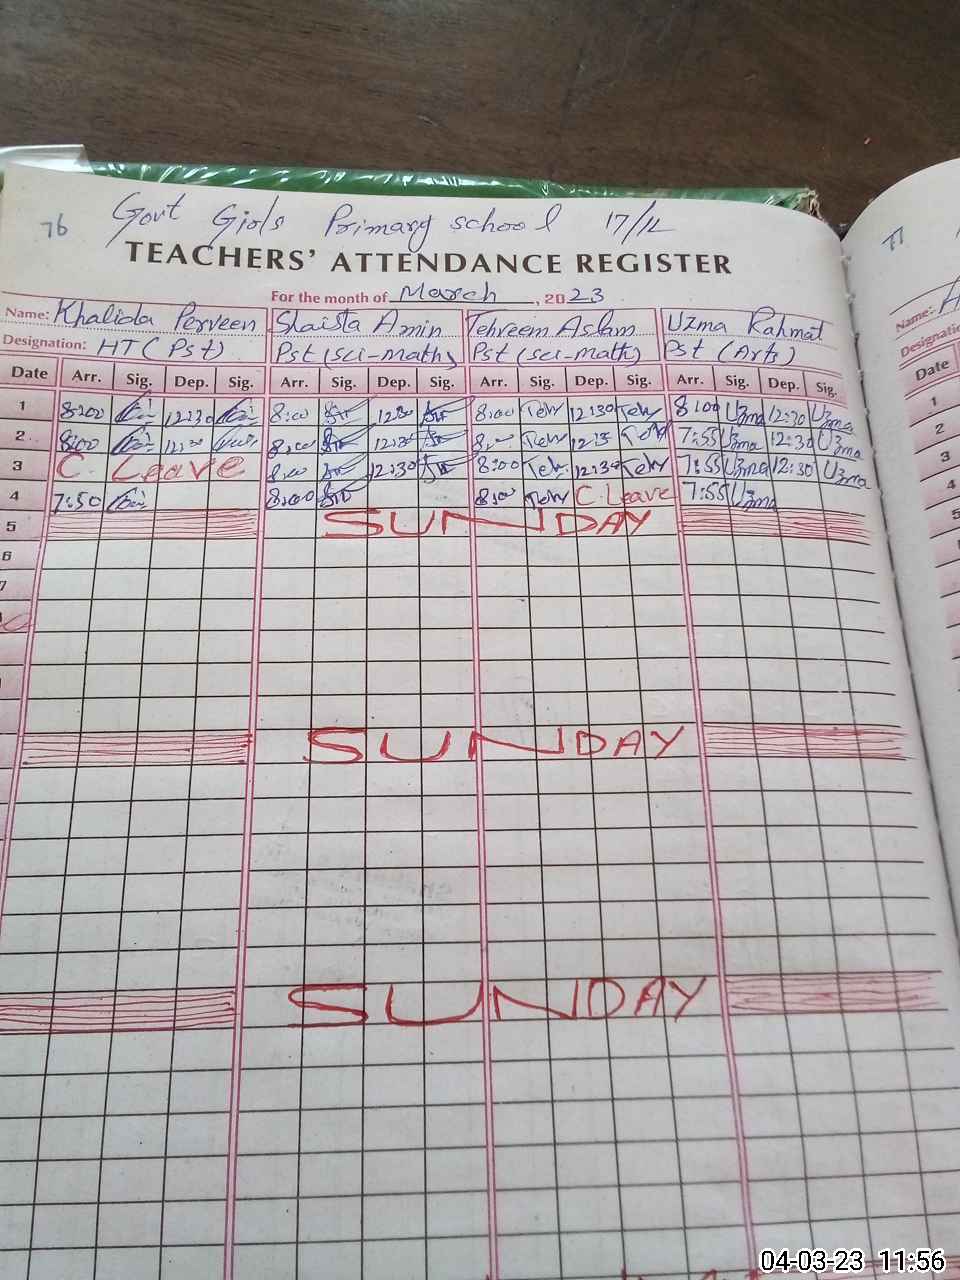 76
Govt Girls Primary school 17/1L
TEACHERS' ATTENDANCE REGISTER
For the month of March, 2023
Name: Khalida Perveen Shaista Amin Tehreem Aslam Uzma Rahmat
Designation: HT (Pst) Pst (sci-math) Pst (sci-math) Pst (Arts)
Date Arr. Sig. Dep. Sig. Arr. Sig. Dep. Sig. Arr. Sig. Dep. Sig. Arr. Sig. Dep. Sig.
1 8:00 12:30 8:00 12:30 8:00 Teh 12:30 Teh 8:00 Uzma 12:30 Uzma
2 8:00 8:00 12:30 8:00 Teh Teh 7:55 Uzma 12:30 Uzma
3 C. Leave 8:00 12:30 8:00 Teh 12:30 Teh 7:55 Uzma 12:30 Uzma
4 7:50 8:00 8:00 Teh C. Leave 7:55 Uzma
5 SUNDAY
6
7
SUNDAY
SUNDAY
77
Name:
Date
1
2
3
4
5
04-03-23 11:56